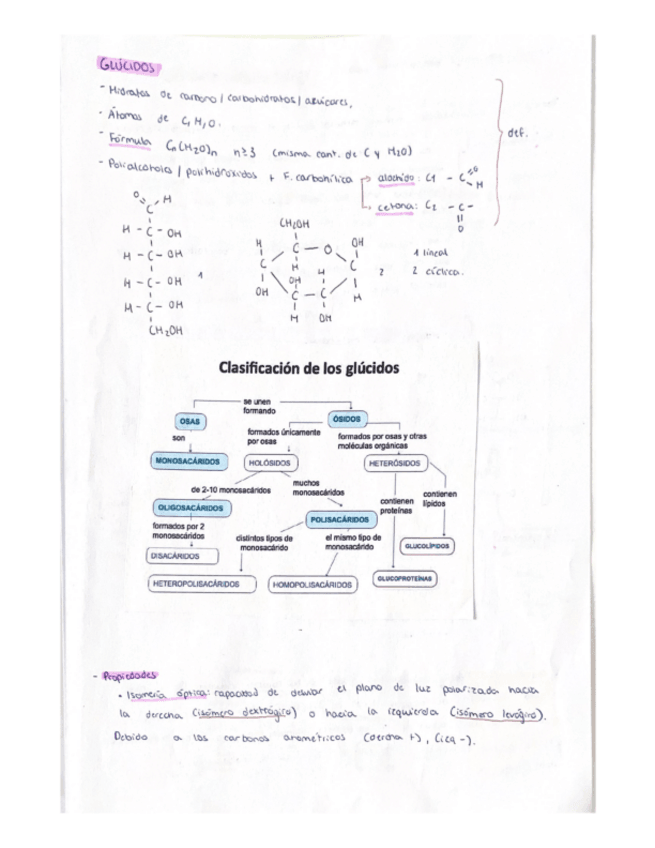 GLÚCIDOS
- Hidratos de carbono / carbohidratos / azúcares,
- Átomos de C, H, O.
- Fórmula Cn(H2O)n n≥3 (misma cant. de C y H2O)
- Polialcohola / polihidroxidos + F. carbonílica → aldehido: C1 - C =O - H
→ cetona: C2 - C - || O
def.
O H
C
H - C - OH
H - C - OH
H - C - OH
H - C - OH
CH2OH
1
CH2OH
H C O OH
C H H C
OH OH H
C - C
H OH
2
1 lineal
2 cíclica.
Clasificación de los glúcidos
se unen
formando
OSAS
ÓSIDOS
son
formados únicamente
por osas
formados por osas y otras
moléculas orgánicas
MONOSACÁRIDOS
HOLÓSIDOS
HETERÓSIDOS
de 2-10 monosacáridos
muchos
monosacáridos
contienen
proteínas
contienen
lípidos
OLIGOSACÁRIDOS
POLISACÁRIDOS
formados por 2
monosacáridos
distintos tipos de
monosacárido
el mismo tipo de
monosacárido
GLUCOLÍPIDOS
DISACÁRIDOS
HETEROPOLISACÁRIDOS
HOMOPOLISACÁRIDOS
GLUCOPROTEÍNAS
- Propiedades
• Isomería óptica: capacidad de desviar el plano de luz polarizada hacia
la derecha (isómero dextrógiro) o hacia la izquierda (isómero levógiro).
Debido a los carbonos anoméricos (derecha +), (izq -).